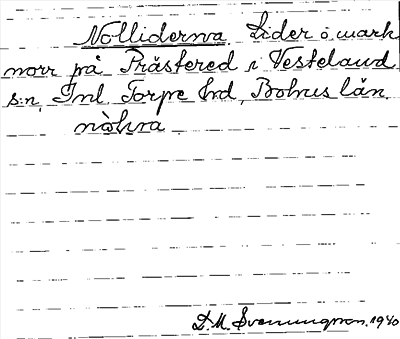 Nolliderna Lider o. mark
norr på Prästered i Vesteland
s:n, Inl. Torpe hrd, Bohus län.
nòl̀ıra
D. M. Svenungson. 1940